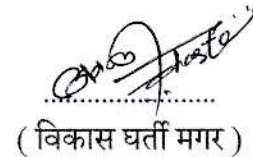 ( विकास घर्ती मगर )